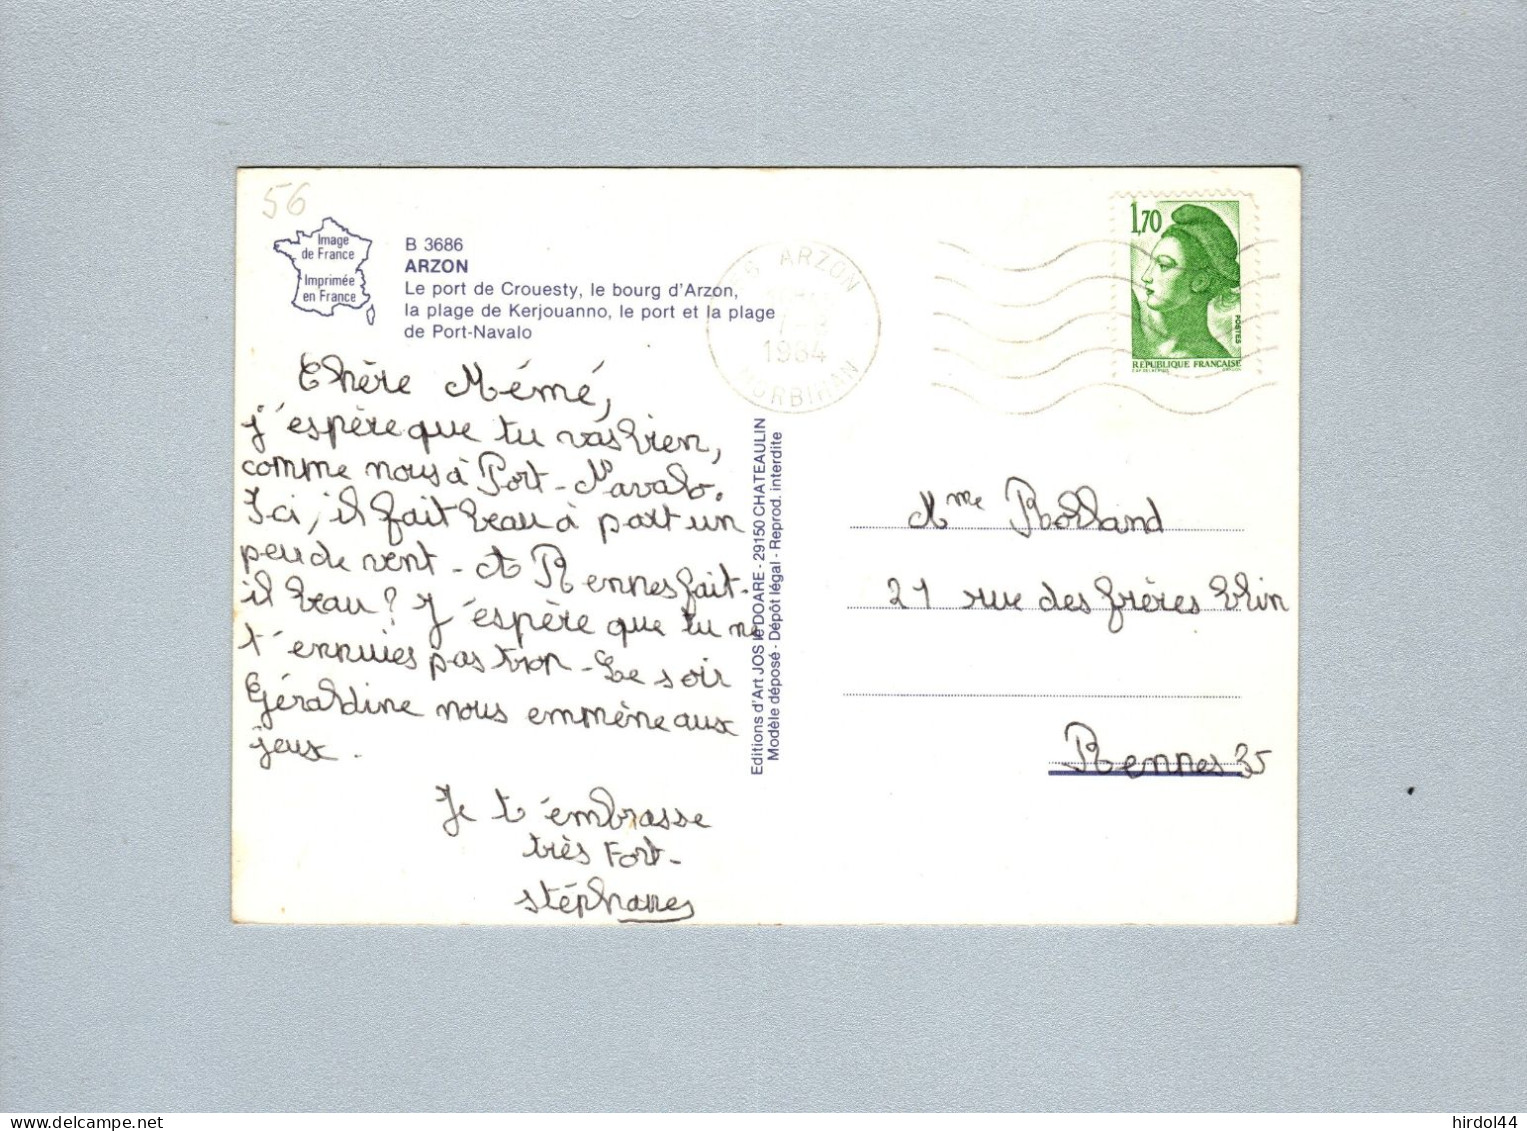 56
Image
de France
Imprimée
en France
B 3686
ARZON
Le port de Crouesty, le bourg d'Arzon,
la plage de Kerjouanno, le port et la plage
de Port-Navalo
ARZON
1984
MORBIHAN
1,70
POSTES
REPUBLIQUE FRANÇAISE
Chère Mémé,
j'espère que tu vas bien,
comme nous à Port-Navalo.
Ici, il fait beau à part un
peu de vent - A Rennes fait-
il beau ? J'espère que tu ne
t'ennuies pas trop - Ce soir
Géraldine nous emmène aux
jeux.
Je t'embrasse
très Fort -
Stéphanes
Editions d'Art JOS le DOARE - 29150 CHATEAULIN
Modèle déposé - Dépôt légal - Reprod. interdite
Mme Rolland
21 rue des frères
Rennes 35
hirdol44